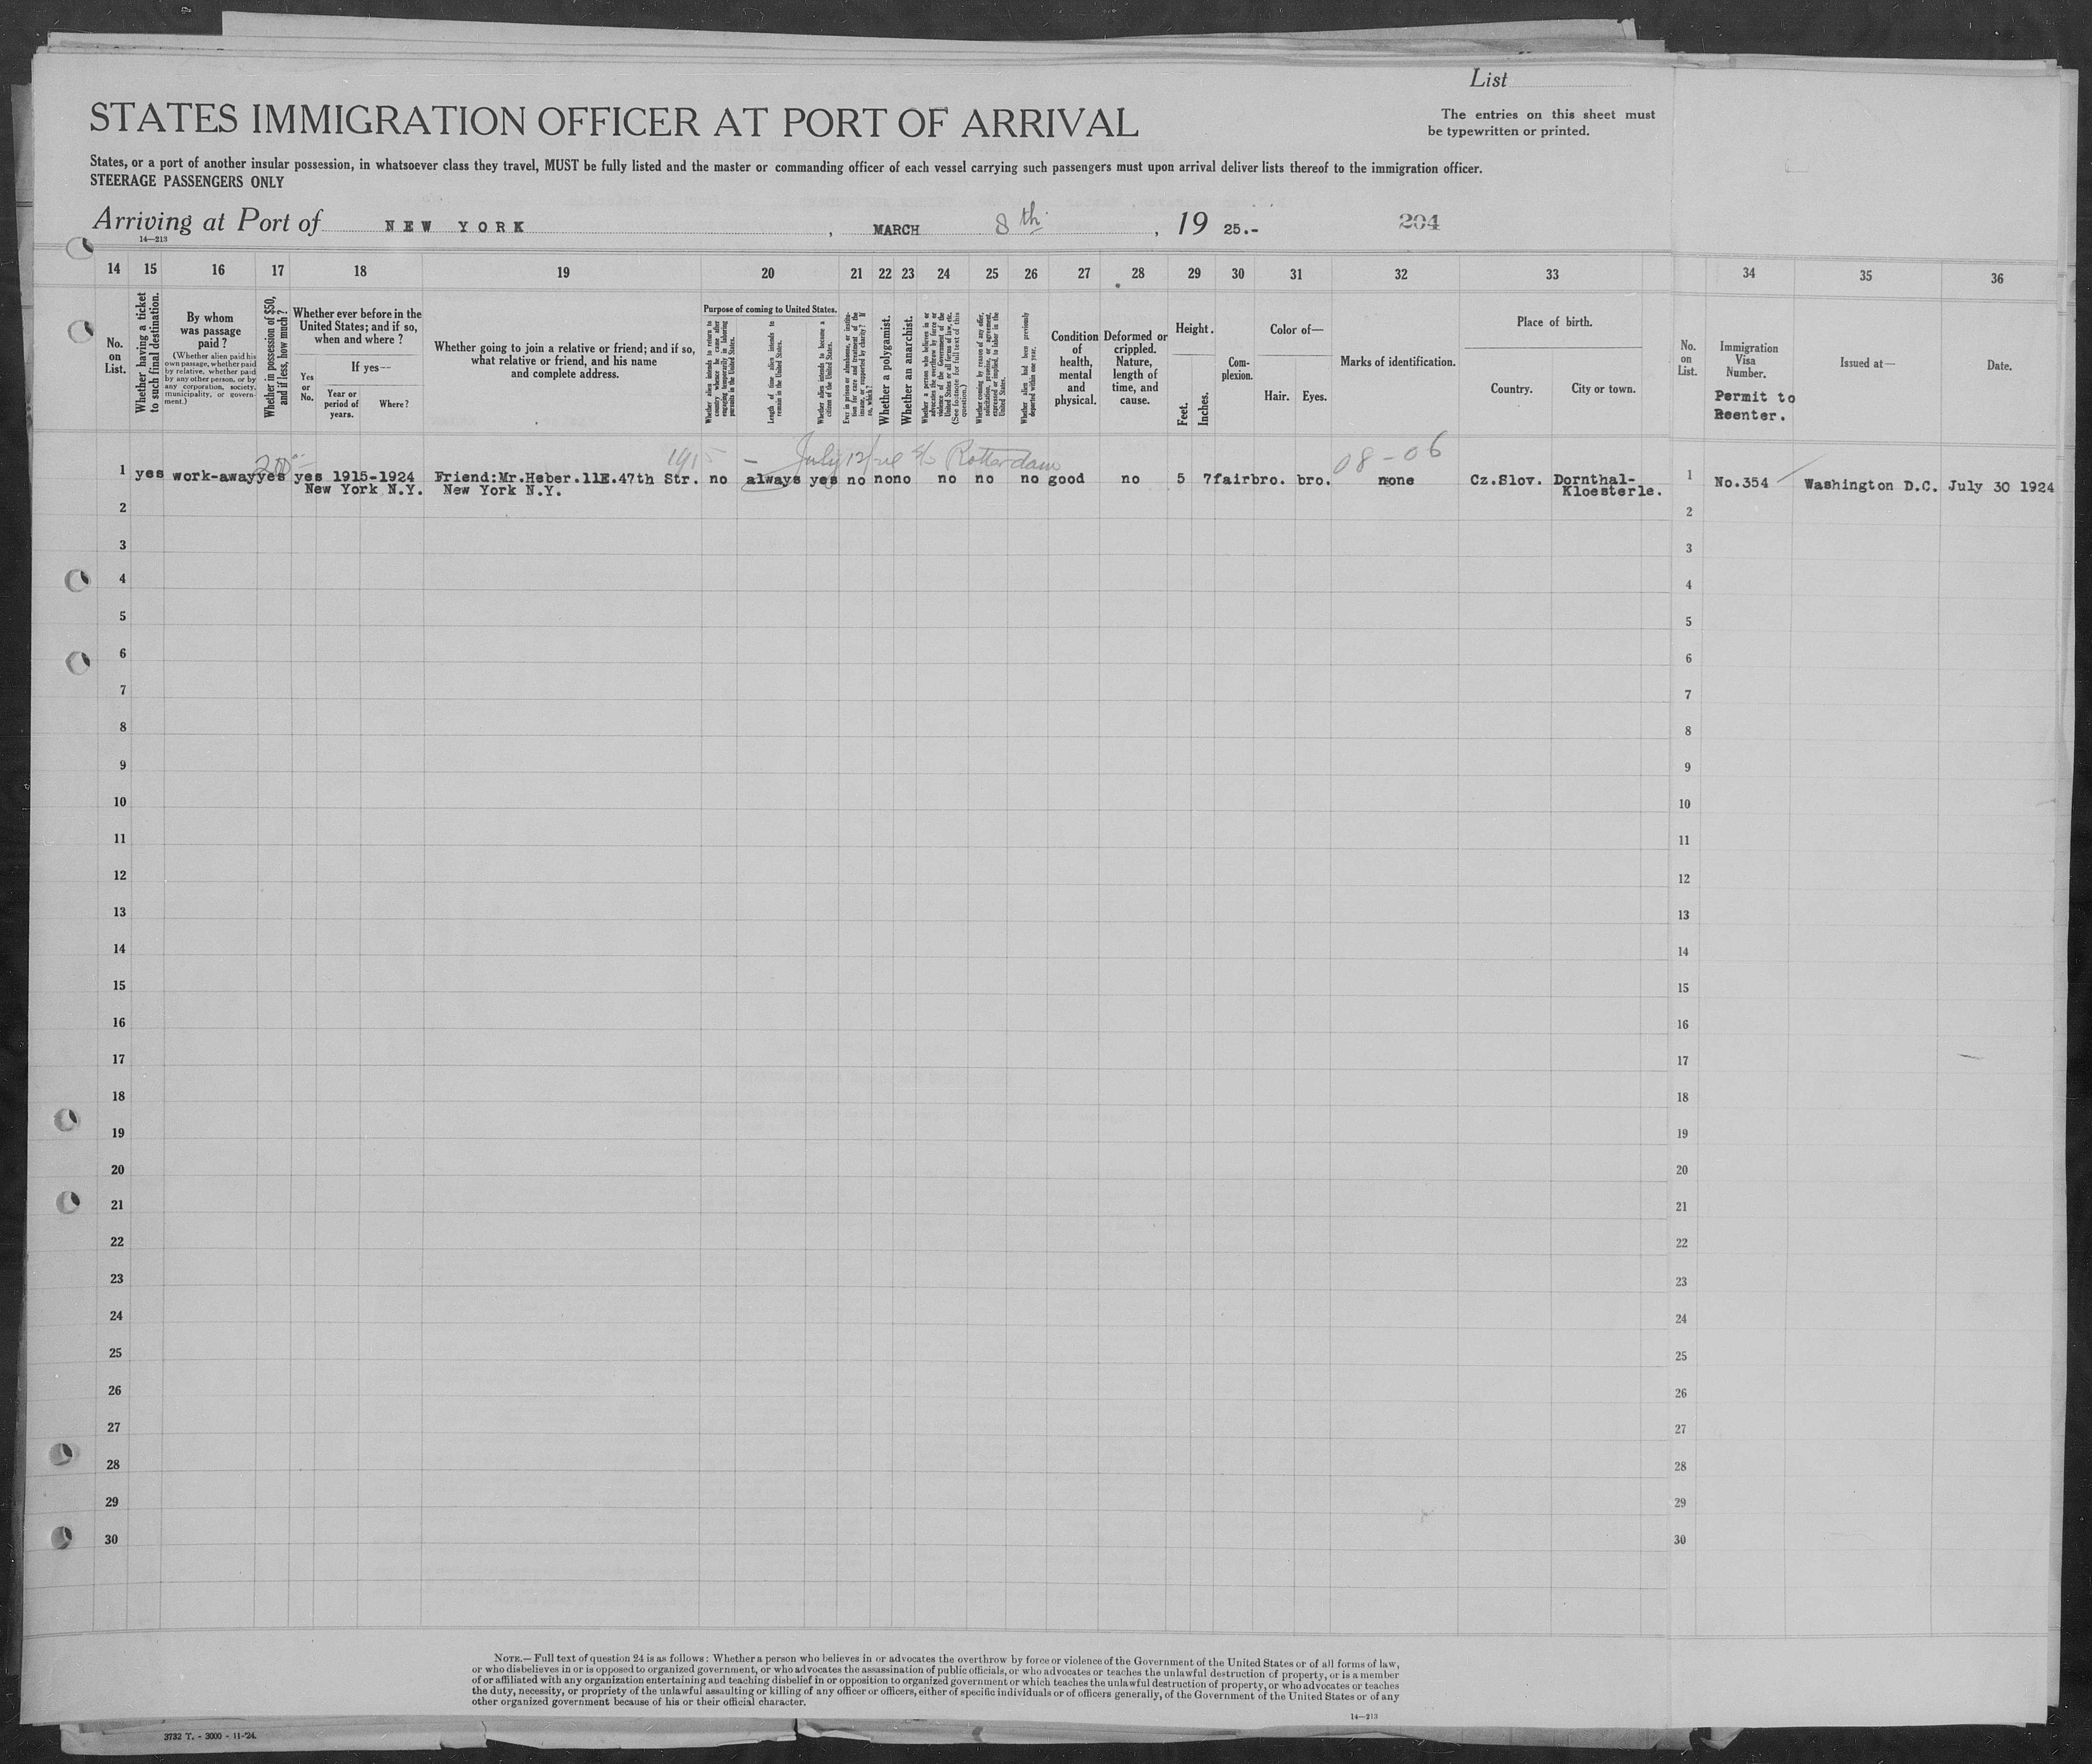 List
STATES IMMIGRATION OFFICER AT PORT OF ARRIVAL
The entries on this sheet must
be typewritten or printed.
States, or a port of another insular possession, in whatsoever class they travel, MUST be fully listed and the master or commanding officer of each vessel carrying such passengers must upon arrival deliver lists thereof to the immigration officer.
STEERAGE PASSENGERS ONLY
Arriving at Port of NEW YORK, MARCH 8th, 19 25.-
204
14—213
14 15 16 17 18 19 20 21 22 23 24 25 26 27 28 29 30 31 32 33 34 35 36
No. on List.
Whether having a ticket to such final destination.
By whom was passage paid?
(Whether alien paid his own passage, whether paid by relative, whether paid by any other person, or by any corporation, society, municipality, or government.)
Whether in possession of $50, and if less, how much?
Whether ever before in the United States; and if so, when and where?
Yes or No.
If yes—
Year or period of years.
Where?
Whether going to join a relative or friend; and if so, what relative or friend, and his name and complete address.
Purpose of coming to United States.
Whether alien intends to return to country whence he came after engaging temporarily in laboring pursuits in the United States.
Length of time alien intends to remain in the United States.
Whether alien intends to become a citizen of the United States.
Ever in prison or almshouse, or institution for care and treatment of the insane, or supported by charity? If so, which?
Whether a polygamist.
Whether an anarchist.
Whether a person who believes in or advocates the overthrow by force or violence of the Government of the United States or all forms of law, etc. (See footnote for full text of this question.)
Whether coming by reason of any offer, solicitation, promise, or agreement, expressed or implied, to labor in the United States.
Whether alien had been previously deported within one year.
Condition of health, mental and physical.
Deformed or crippled. Nature, length of time, and cause.
Height.
Feet.
Inches.
Complexion.
Color of—
Hair.
Eyes.
Marks of identification.
Place of birth.
Country.
City or town.
No. on List.
Immigration Visa Number.
Permit to Reenter.
Issued at—
Date.
200
1915 - July 12/24 S/S Rotterdam
08-06
1 yes work-away yes yes 1915-1924 Friend:Mr.Heber.11E.47th Str. no always yes no no no no no no good no 5 7 fair bro. bro. none Cz.Slov. Dornthal- 1 No.354 Washington D.C. July 30 1924
New York N.Y. New York N.Y. Kloesterle.
2 2
3 3
4 4
5 5
6 6
7 7
8 8
9 9
10 10
11 11
12 12
13 13
14 14
15 15
16 16
17 17
18 18
19 19
20 20
21 21
22 22
23 23
24 24
25 25
26 26
27 27
28 28
29 29
30 30
NOTE.—Full text of question 24 is as follows: Whether a person who believes in or advocates the overthrow by force or violence of the Government of the United States or of all forms of law,
or who disbelieves in or is opposed to organized government, or who advocates the assassination of public officials, or who advocates or teaches the unlawful destruction of property, or is a member
of or affiliated with any organization entertaining and teaching disbelief in or opposition to organized government or which teaches the unlawful destruction of property, or who advocates or teaches
the duty, necessity, or propriety of the unlawful assaulting or killing of any officer or officers, either of specific individuals or of officers generally, of the Government of the United States or of any
other organized government because of his or their official character.
14—213
3732 T. - 3000 - 11-'24.